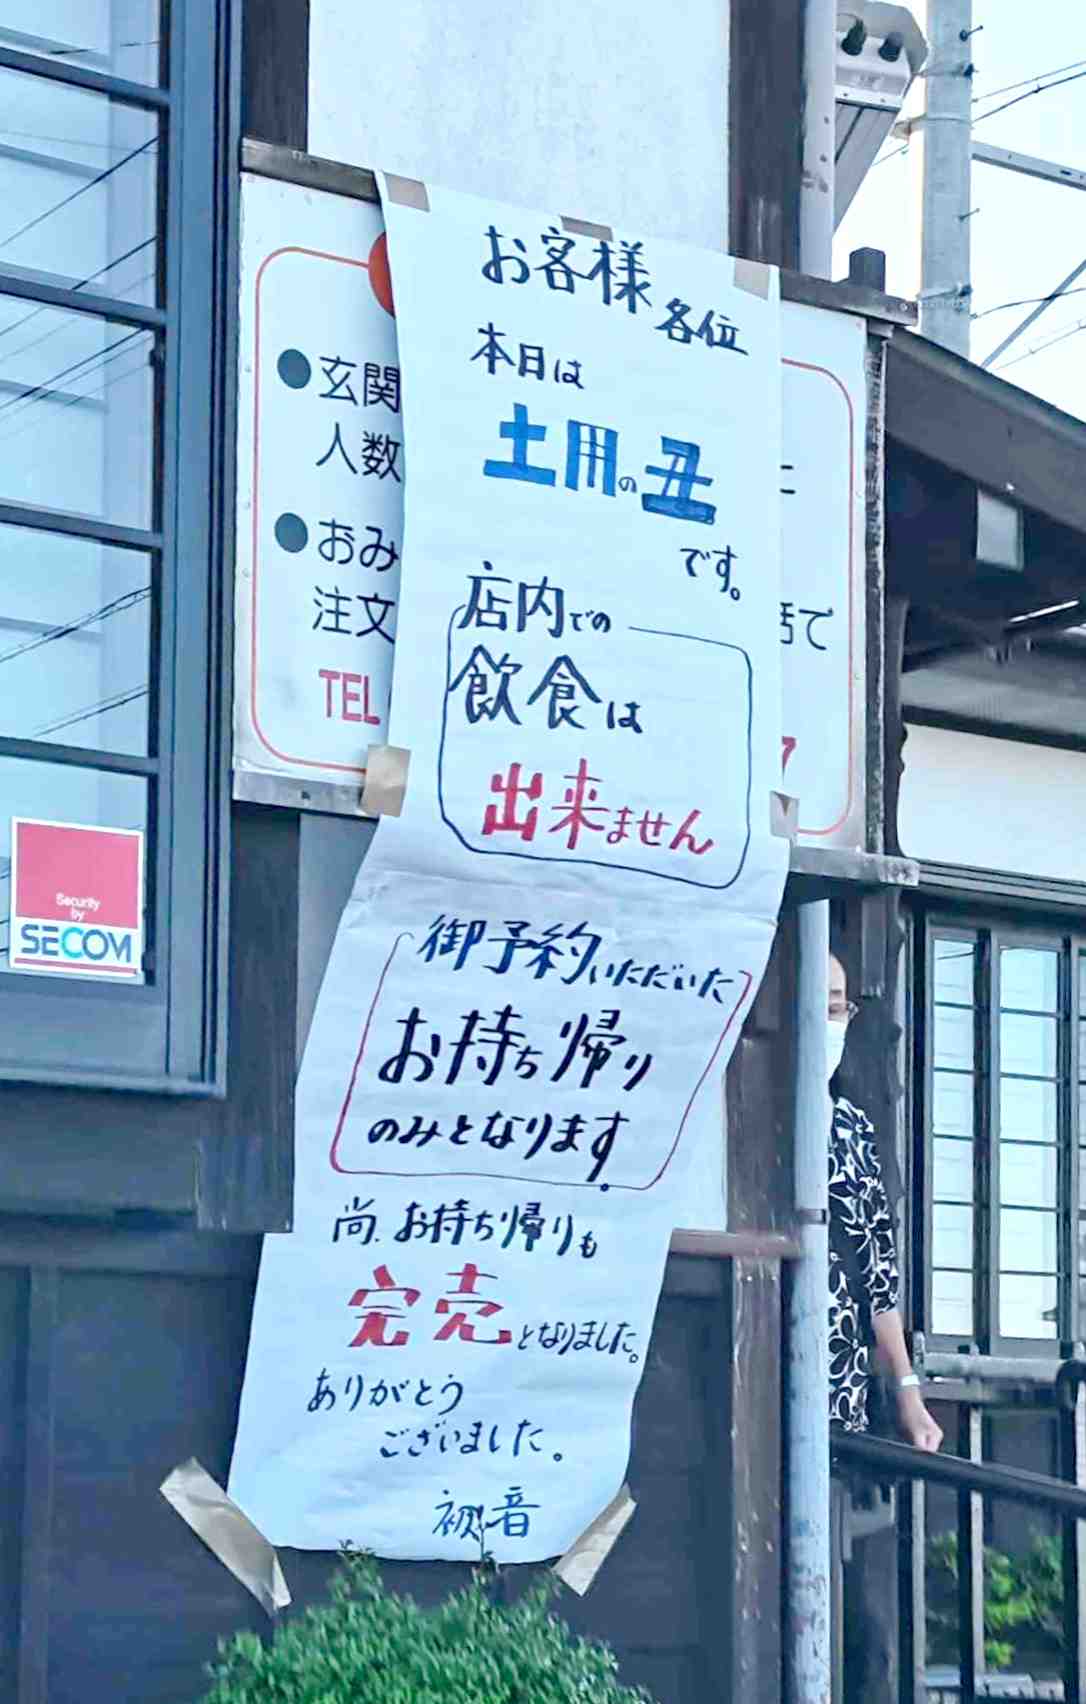 お客様各位
本日は
土用の丑
です。
店内での
飲食は
出来ません
御予約いただいた
お持ち帰り
のみとなります。
尚、お持ち帰りも
完売となりました。
ありがとう
ございました。
初音
●玄関
人数
●おみ
注文
TEL
話で
7
Security
by
SECOM